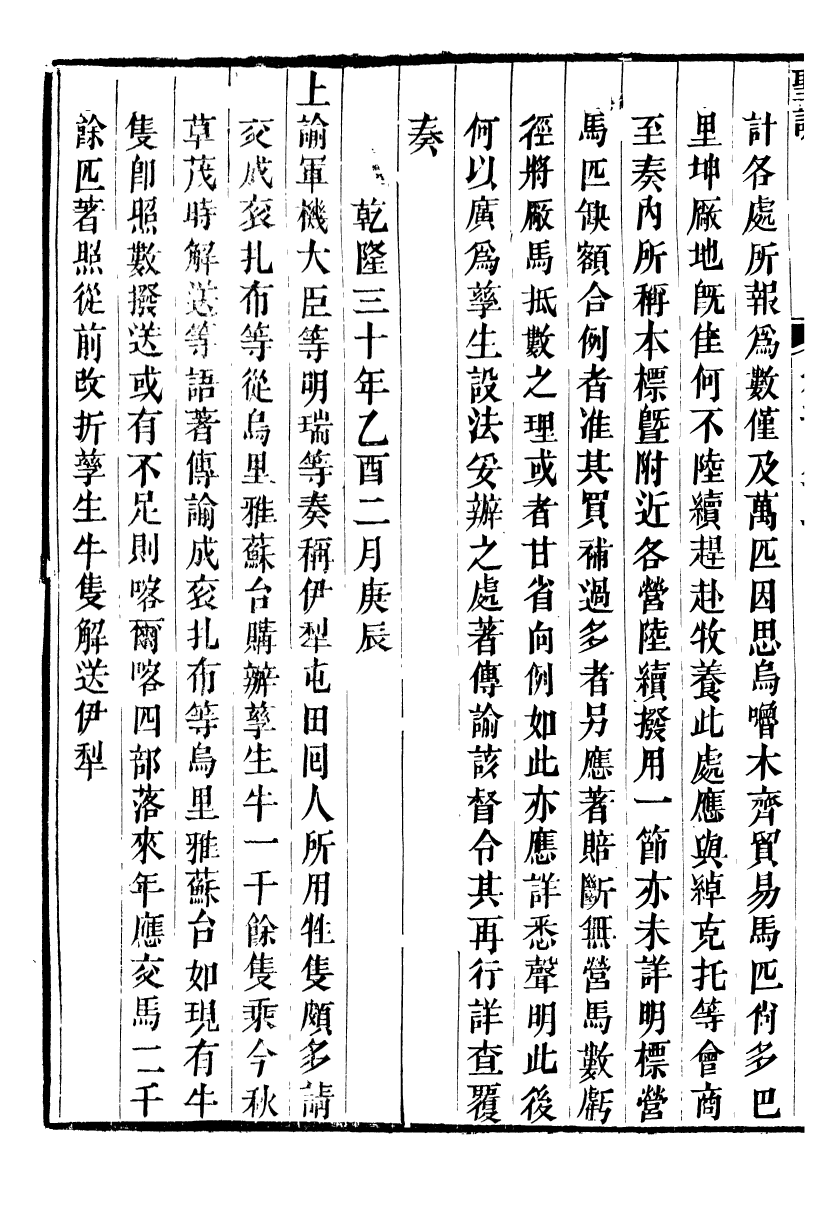 計各處所報爲數僅及萬匹因思烏嚕木齊貿易馬匹尙多巴
里坤廠地旣佳何不陸續趕赴牧養此處應與綽克托等會商
至奏內所稱本標曁附近各營陸續撥用一節亦未詳明標營
馬匹缺額合例者准其買補過多者另應著賠斷無營馬數虧
徑將廠馬抵數之理或者甘省向例如此亦應詳悉聲明此後
何以廣爲孳生設法妥辦之處著傳諭該督令其再行詳查覆
奏
乾隆三十年乙酉二月庚辰
上諭軍機大臣等明瑞等奏稱伊犁屯田回人所用牲隻頗多請
交成袞扎布等從烏里雅蘇台購辦孳生牛一千餘隻乘今秋
草茂時解送等語著傳諭成袞扎布等烏里雅蘇台如現有牛
隻卽照數撥送或有不足則喀爾喀四部落來年應交馬二千
餘匹著照從前改折孳生牛隻解送伊犁